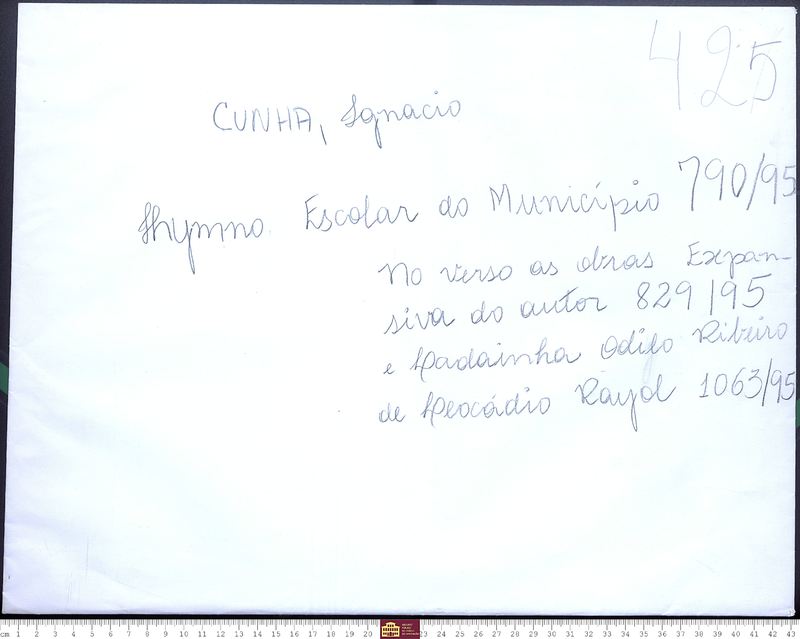 425
CUNHA, Ignacio
Hymno Escolar do Município 790/95
No verso as obras Expan-
siva do autor 829/95
e Ladainha Odilo Ribeiro
de Leocádio Rayol 1063/95
cm 1 2 3 4 5 6 7 8 9 10 11 12 13 14 15 16 17 18 19 20 23 24 25 26 27 28 29 30 31 32 33 34 35 36 37 38 39 40 41 42